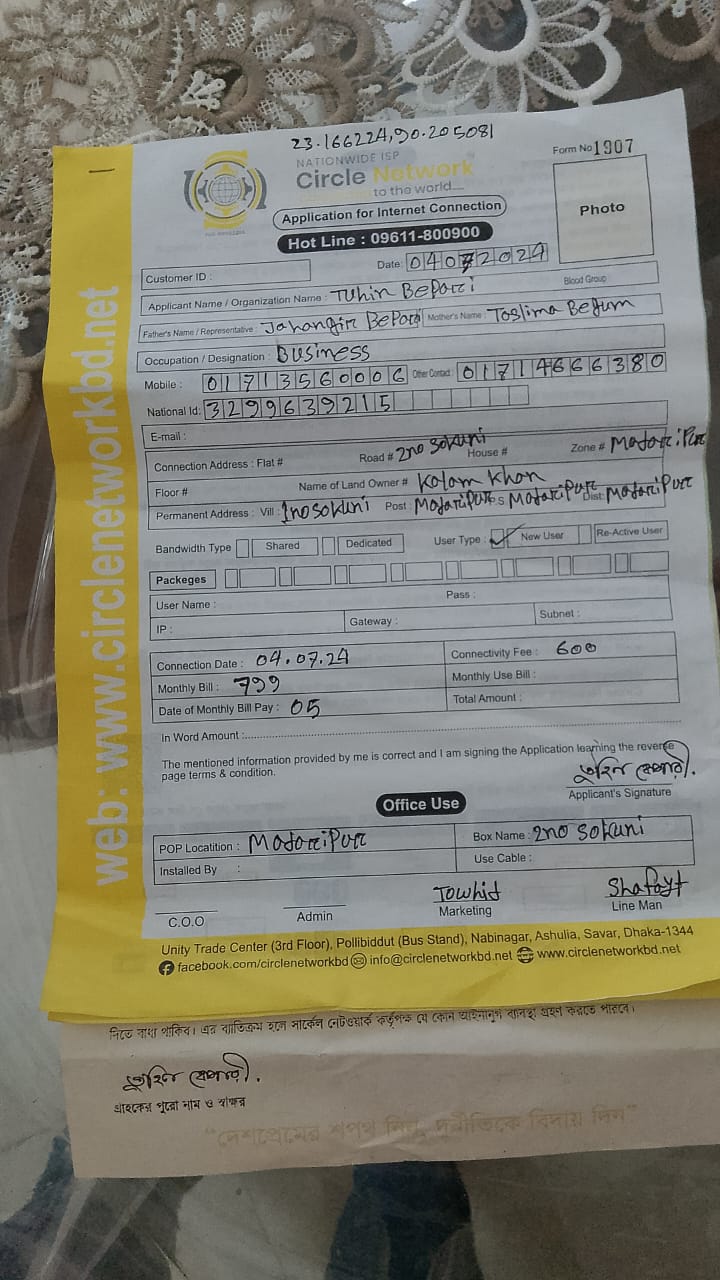 23.166224,90.205081
NATIONWIDE ISP
Circle Network
to the world....
Form No 1907
Application for Internet Connection
Photo
Hot Line : 09611-800900
Date: 04072024
Customer ID :
Applicant Name / Organization Name : Tuhin Bepari
Blood Group
Father's Name / Representative : Jahangir Bepari Mother's Name : Toslima Begum
Occupation / Designation : Business
Mobile : 01713560006 Other Contact : 01714666380
National Id: 3299639215
E-mail :
Connection Address : Flat # Road # 2no Sokuni House # Zone # Madaripur
Floor # Name of Land Owner # Kalam Khan
Permanent Address : Vill : 1no Sokuni Post : Madaripur P.S Madaripur Dist: Madaripur
Bandwidth Type Shared Dedicated User Type : ✓ New User Re-Active User
Packeges
User Name : Pass :
IP : Gateway : Subnet :
Connection Date : 04.07.24 Connectivity Fee : 600
Monthly Bill : 799 Monthly Use Bill :
Date of Monthly Bill Pay : 05 Total Amount :
In Word Amount :
The mentioned information provided by me is correct and I am signing the Application learning the reverse
page terms & condition.
তুহিন বেপারী.
Applicant's Signature
Office Use
POP Locatition : Madaripur Box Name : 2no Sokuni
Installed By : Use Cable :
Towhid Shafayt
C.O.O Admin Marketing Line Man
Unity Trade Center (3rd Floor), Pollibiddut (Bus Stand), Nabinagar, Ashulia, Savar, Dhaka-1344
facebook.com/circlenetworkbd info@circlenetworkbd.net www.circlenetworkbd.net
web: www.circlenetworkbd.net
দিতে বাধ্য থাকিব। এর ব্যতিক্রম হলে সার্কেল নেটওয়ার্ক কর্তৃপক্ষ যে কোন আইনানুগ ব্যবস্থা গ্রহণ করতে পারবে।
তুহিন বেপারী.
গ্রাহকের পুরো নাম ও স্বাক্ষর
"দেশপ্রেমের শপথ নিন, দুর্নীতিকে বিদায় দিন"